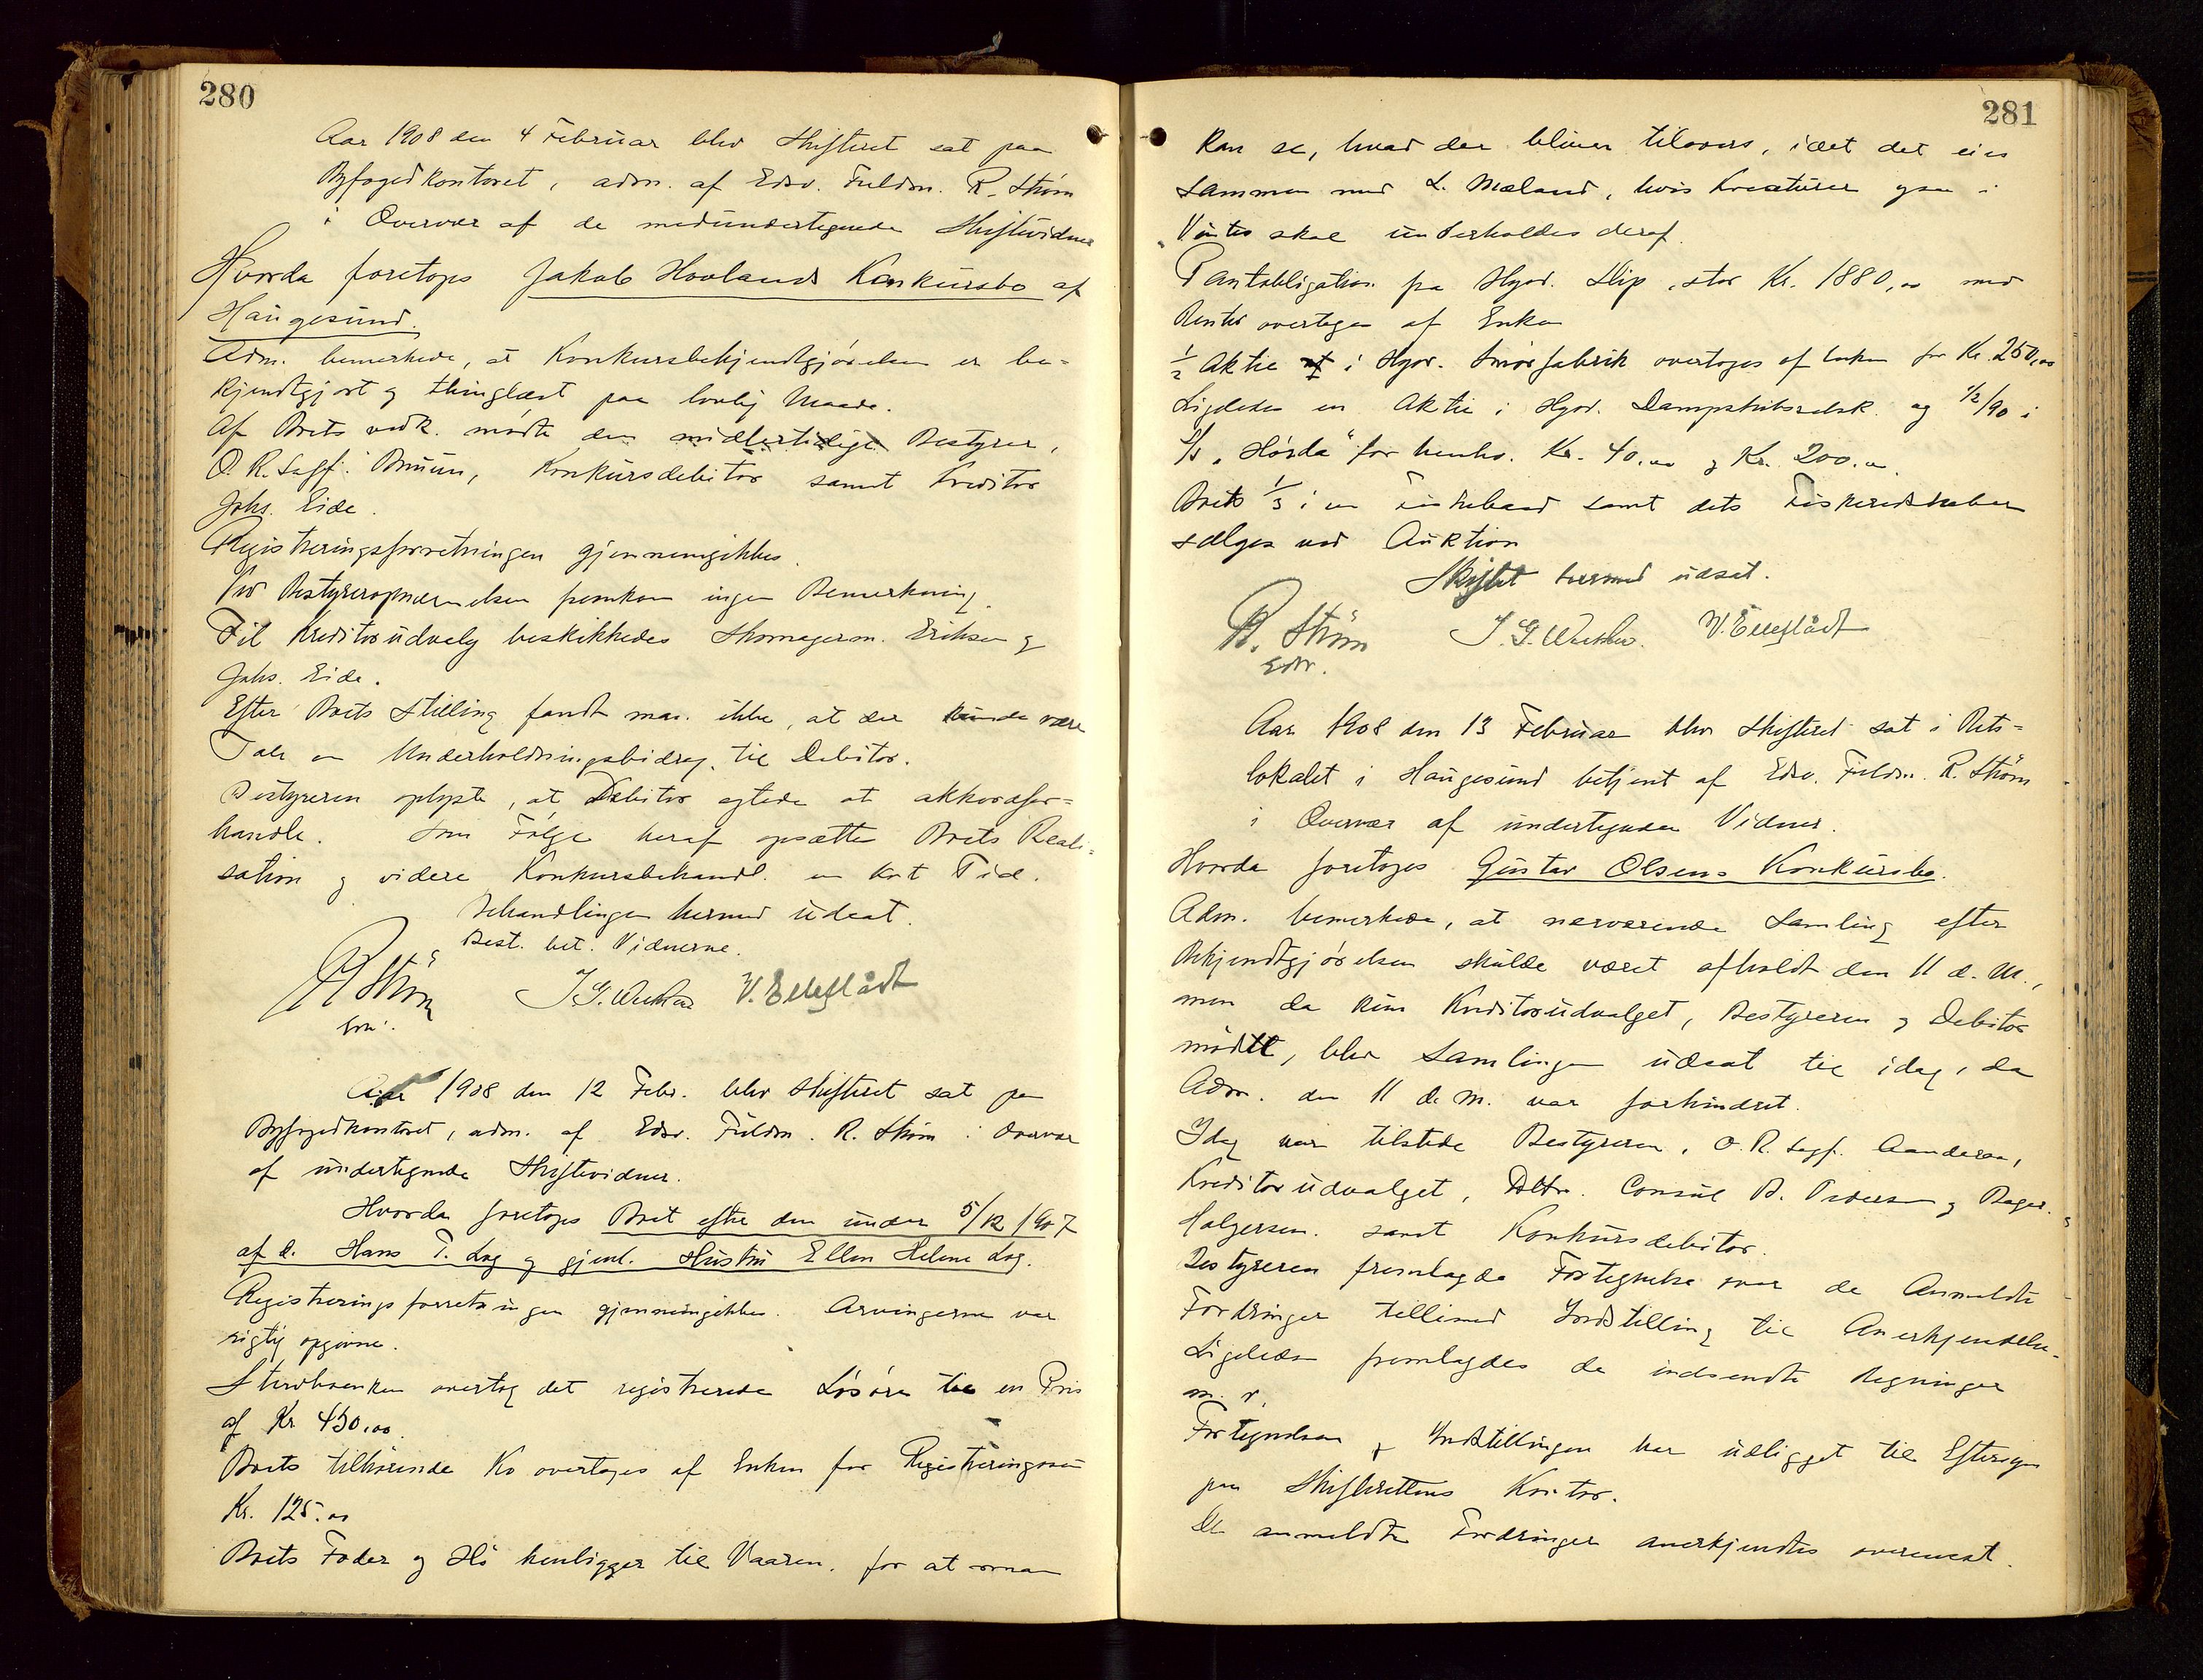 280
Aar 1908 den 4 Februar blev Skifteret sat paa
Byfogedkontoret, adm. af Edsv. Fuldm. R. Strøm
i Overvær af de medundertegnede Skiftevidner
Hvorda foretoges Jakob Hovlands Konkursbo af
Haugesund.
Adm. bemerkede, at Konkursbekjendtgjørelsen er be-
kjendtgjort og thinglæst paa lovlig Maade.
Af Boets vedk. mødte den midlertidige Bestyrer,
O. R. Sagf. Bruun, Konkursdebitor samt Kreditor
Johs. Eide.
Registreringsforretningen gjennemgikkes.
Ved Bestyreropnævnelsen fremkom ingen Bemerkning.
Til Kreditorudvalg beskikkedes Skomagerm. Eriksen og
Johs. Eide.
Efter Boets Stilling fandt man ikke, at der kunde være
Tale om Underholdningsbidrag til Debitor.
Bestyreren oplyste, at Debitor agtede at akkordfor-
handle. Som Følge heraf opsættes Boets Reali-
sation og videre Konkursbehandl. en kort Tid.
Behandlingen hermed udsat.
Best. bet. Vidnerne.
R Strøm V. Elleflådt
Edsv.
Aar 1908 den 12 Febr. blev Skifteret sat paa
Byfogedkontoret, adm. af Edsv. Fuldm. R. Strøm i Overvær
af undertegnede Skiftevidner.
Hvorda foretoges Boet efter den under 5/12 1907
af d. Hans T. Lag og gjenl. Hustru Ellen Helene Lag.
Registreringsforretningen gjennemgikkes. Arvingerne var
rigtig opgivne.
Stervboenken overtog det registrerede Løsøre til en Pris
af Kr 450,00.
Boets tilhørende Ko overtages af Enken for Registreringssum
Kr. 125.00
Boets Foder og Hø henligger til Vaaren, for at man
281
kan se, hvad der bliver tilovers, idet det eies
sammen med L. Mæland, hvis Kreaturer ogsaa i
Vinter skal underholdes deraf.
Pantobligation fra Hgsd. Slip, stor Kr. 1880,00 med
Renter overtages af Enken
1/2 Aktie i Hgsd. Smørfabrik overtoges af Enken for Kr. 250,00
Ligeledes en Aktie i Hgsd. Dampskibsselsk. og 1/2/90 i
S/S "Hørda" for henhv. Kr. 40.00 og Kr. 200.00.
Boets 1/3 i en Fiskebaad samt dets Fiskeredskaber
sælges ved Auktion
Skiftet hermed udsat.
R. Strøm V. Elleflådt
Edsv.
Aar 1908 den 13 Februar blev Skifteret sat i Rets-
lokalet i Haugesund betjent af Edsv. Fuldm. R. Strøm
i Overvær af undertegnede Vidner.
Hvorda foretoges Gustav Olsens Konkursbo.
Adm. bemerkede, at nærværende Samling efter
Bekjendtgjørelsen skulde været afholdt den 11 d. M.,
men da kun Kreditorudvalget, Bestyreren og Debitor
mødte, blev Samlingen udsat til idag, da
Adm. den 11 d. M. var forhindret.
Idag var tilstede Bestyreren, O. R. Sagf. Aanderaa,
Kreditorudvalget, Consul B. Pedersen og Bager
Holgersen samt Konkursdebitor.
Bestyreren fremlagde Fortegnelse over de Anmeldte
Fordringer tillimed Indstilling til Anerkjendelse.
Ligeledes fremlagdes de indsendte Regninger
m. v.
Fortegnelsen & Indstillingen har udligget til Eftersyn
paa Skifterettens Kontor.
De anmeldte Fordringer anerkjendtes overensst.